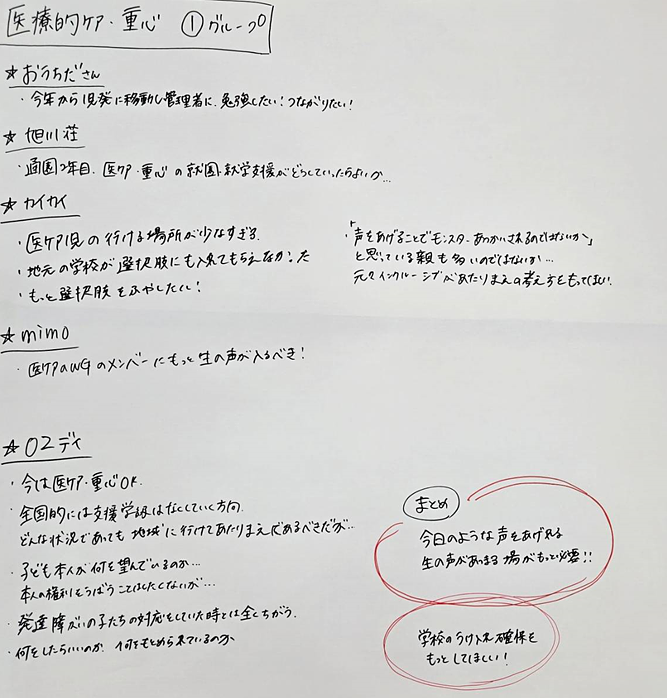 医療的ケア・重心 ①グループ
☆おうちださん
・今年から児発に移動し管理者に、勉強したい！つながりたい！
☆旭川荘
・通園2年目、医ケア・重心の就園・就学支援がどうしていったらよいか…
☆カイカイ
・医ケア児の行ける場所が少なすぎる。
・地元の学校が選択肢にも入れてもらえなかった
・もっと選択肢をふやしたい！
・「声をあげることでモンスターあつかいされるのではないか」
と思っている親も多いのではないか…
元々インクルーシブがあたりまえの考え方をもってほしい。
☆mimo
・医ケアのWGのメンバーにもっと生の声が入るべき！
☆OZデイ
・今は医ケア・重心OK.
・全国的には支援学級はなくしていく方向、
どんな状況であっても地域に行けてあたりまえであるべきだが…
・子ども本人が何を望んでいるのか…
本人の権利をうばうことはしたくないが…
・発達障がいの子たちの対応をしていた時とは全くちがう。
・何をしたらいいのか 何をもとめられているのか
まとめ
今日のような声をあげれる
生の声があつまる場がもっと必要!!
学校のうけ入れ確保を
もっとしてほしい！